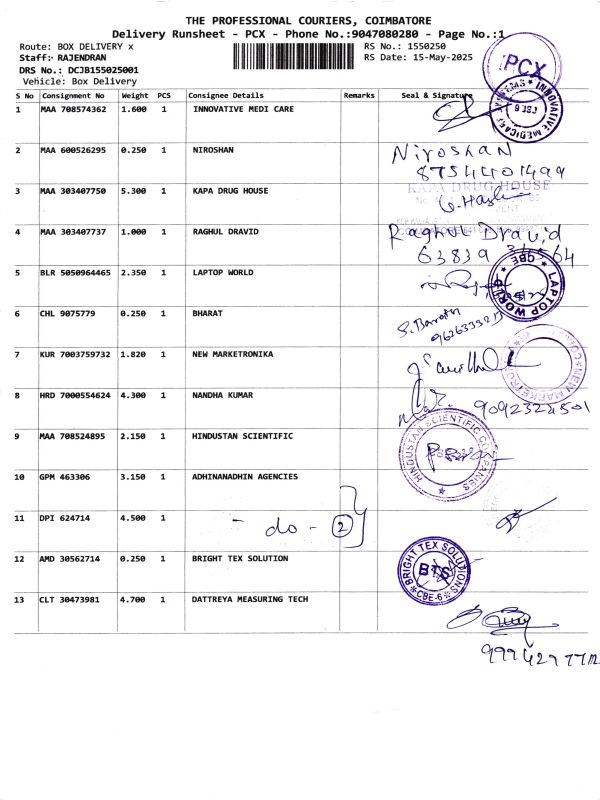 THE PROFESSIONAL COURIERS, COIMBATORE
Delivery Runsheet - PCX - Phone No.:9047080280 - Page No.:1
Route: BOX DELIVERY x RS No.: 1550250
Staff: RAJENDRAN RS Date: 15-May-2025
DRS No.: DCJB155025001
Vehicle: Box Delivery
PCX
S No Consignment No Weight PCS Consignee Details Remarks Seal & Signature
1 MAA 708574362 1.600 1 INNOVATIVE MEDI CARE
2 MAA 600526295 0.250 1 NIROSHAN Niroshan
3 MAA 303407750 5.300 1 KAPA DRUG HOUSE KAPA DRUG HOUSE
4 MAA 303407737 1.000 1 RAGHUL DRAVID Raghul Dravid
63839
5 BLR 5050964465 2.350 1 LAPTOP WORLD LAPTOP WORLD CBE
6 CHL 9075779 0.250 1 BHARAT
7 KUR 7003759732 1.820 1 NEW MARKETRONIKA
8 HRD 7000554624 4.300 1 NANDHA KUMAR
9 MAA 708524895 2.150 1 HINDUSTAN SCIENTIFIC HINDUSTAN SCIENTIFIC COMPANIES
10 GPM 463306 3.150 1 ADHINANADHIN AGENCIES
11 DPI 624714 4.500 1 - do - 2
12 AMD 30562714 0.250 1 BRIGHT TEX SOLUTION BRIGHT TEX SOLUTIONS BTS CBE-6
13 CLT 30473981 4.700 1 DATTREYA MEASURING TECH